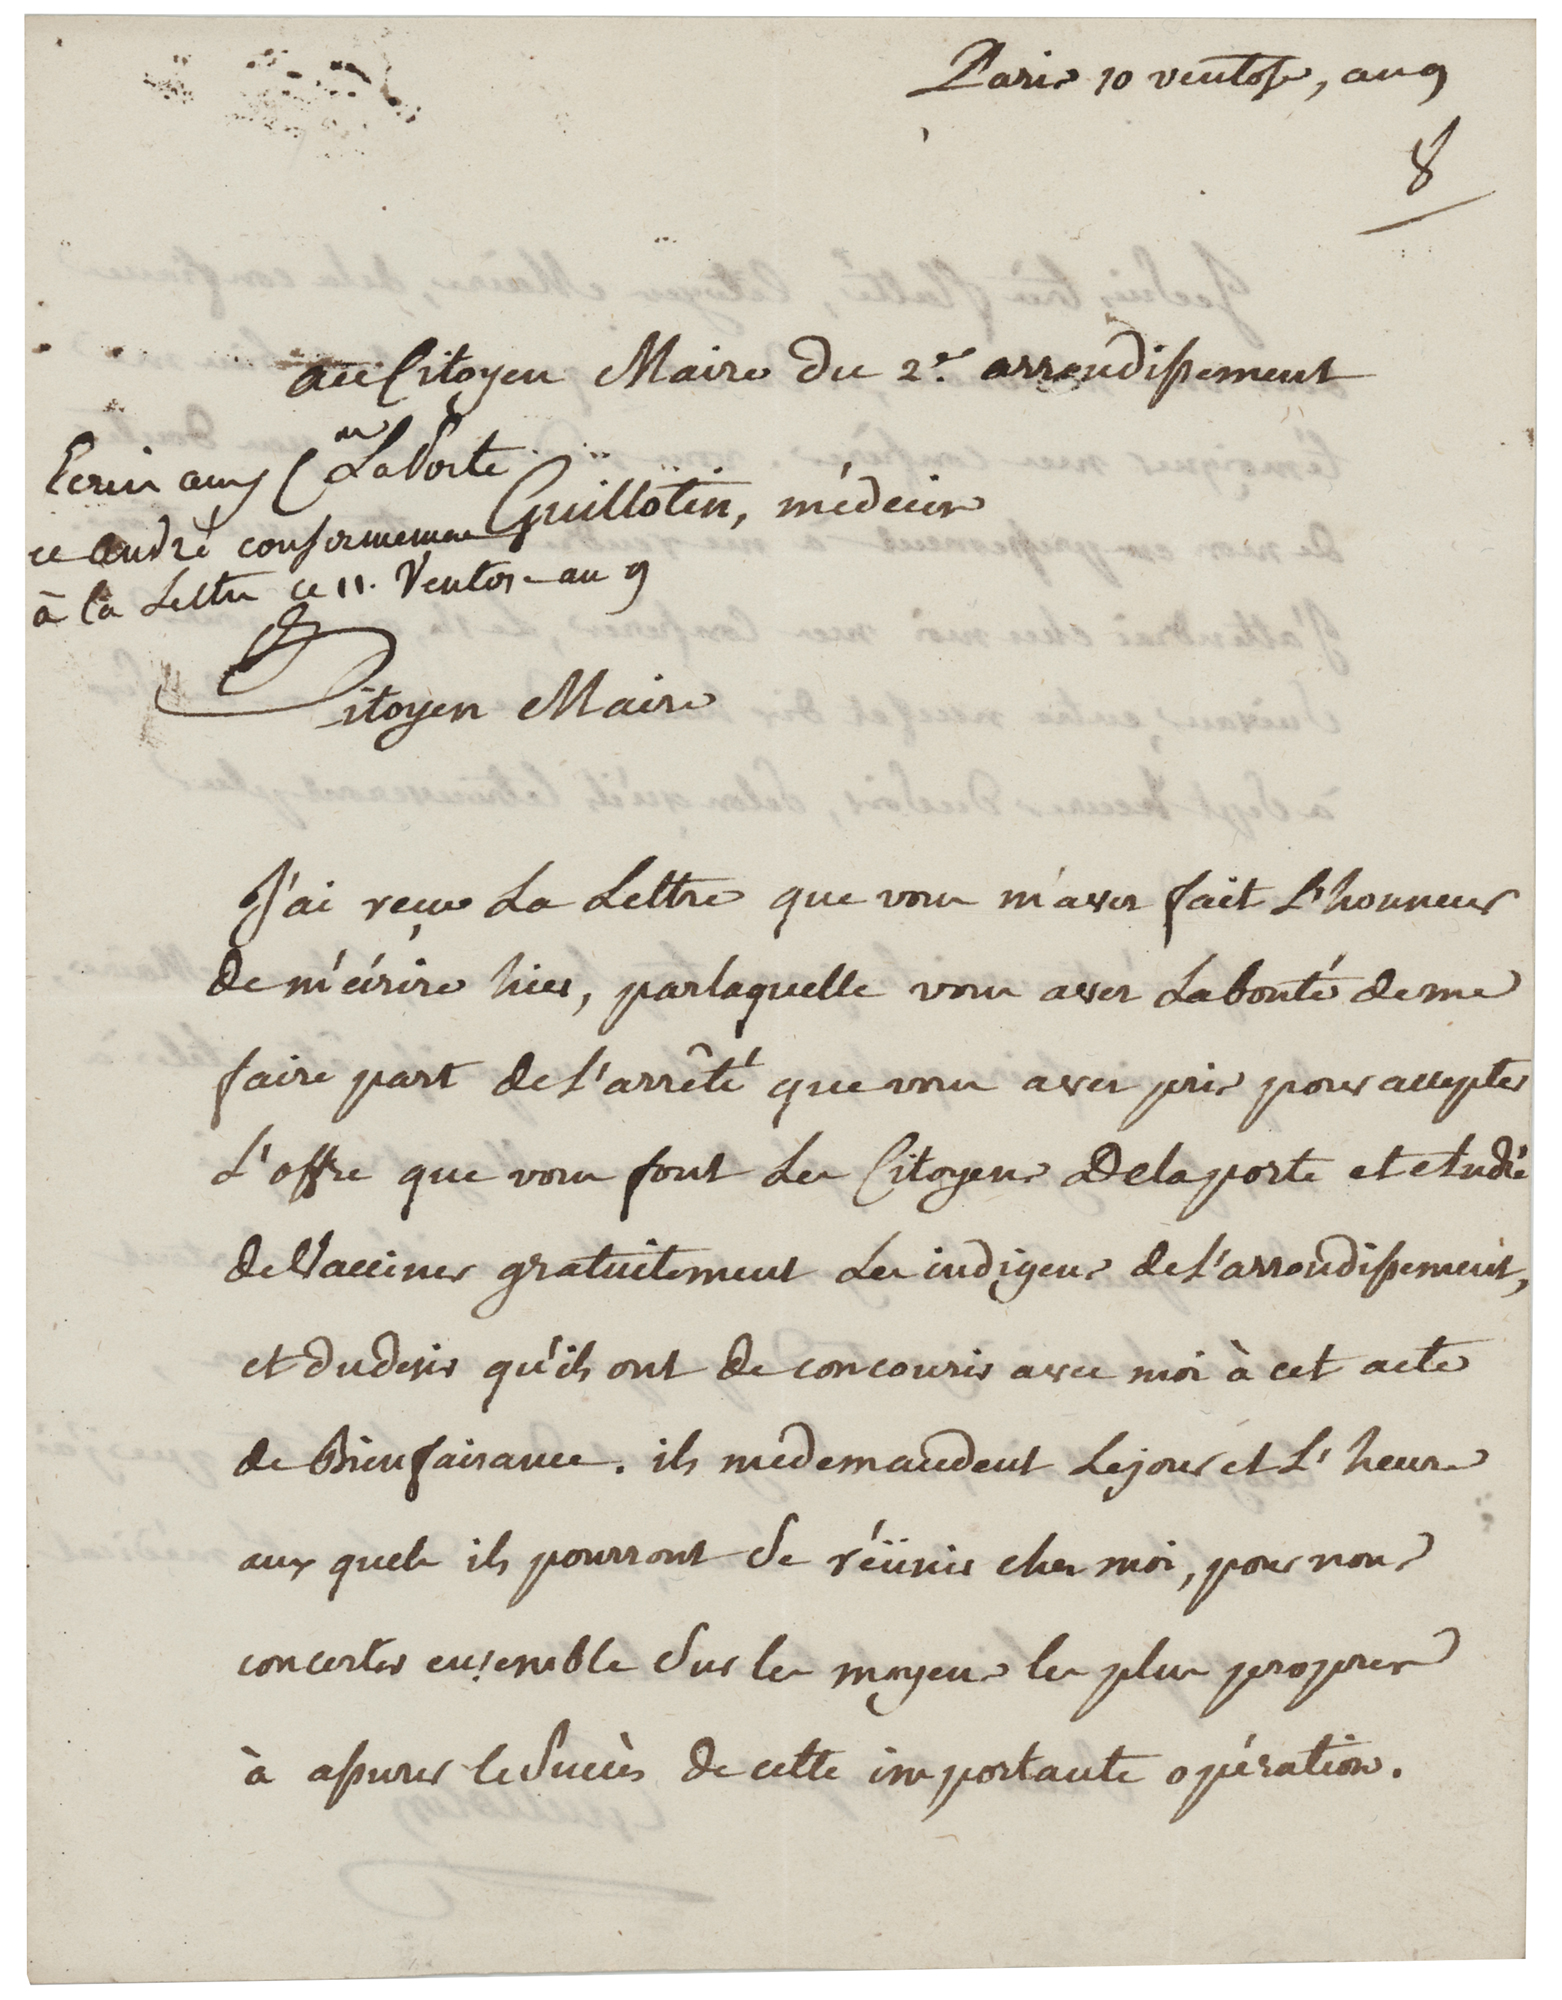 Paris 10 ventose, an 9
8
au Citoyen Maire du 2.e arrondissement
Ecrire aux C.en Laporte
et andré conformement
à la Lettre ce 11. Ventose an 9
Guillotin, médecin
Citoyen Maire
J'ai reçu La Lettre que vous m'avez fait L'honneur
de m'écrire hier, par laquelle vous avez La bonté de me
faire part de L'arrêté que vous avez pris pour accepter
L'offre que vous font Les Citoyens Delaporte et André
de Vacciner gratuitement Les indigens de L'arrondissement,
et du desir qu'ils ont de concourir avec moi à cet acte
de Bienfaisance. ils me demandent Le jour et L'heure
aux quels ils pourront se réünir chez moi, pour nous
concerter ensemble Sur les moyens les plus propres
à assurer le Succès de cette importante opération.